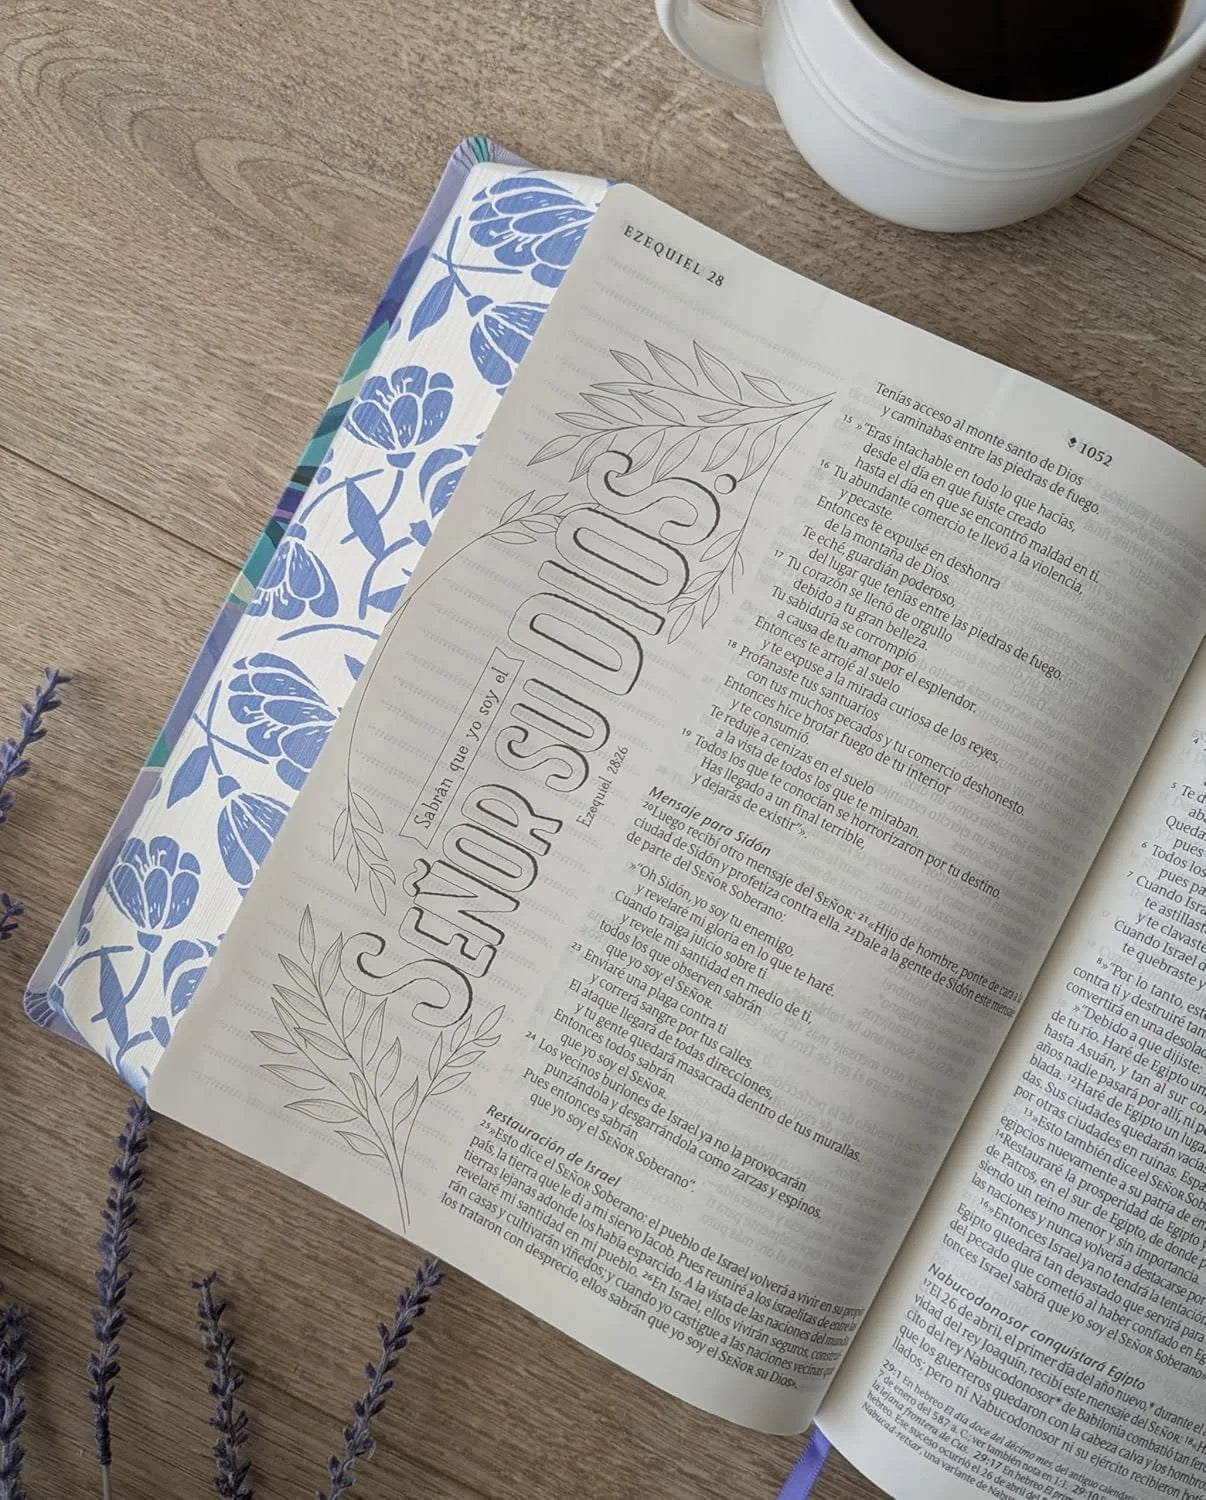 EZEQUIEL 28
1052
Sabrán que yo soy el
SEÑOR SU DIOS.
Ezequiel 28:26
Tenías acceso al monte santo de Dios
y caminabas entre las piedras de fuego.
15 »"Eras intachable en todo lo que hacías,
desde el día en que fuiste creado
hasta el día en que se encontró maldad en ti.
16 Tu abundante comercio te llevó a la violencia,
y pecaste.
Entonces te expulsé en deshonra
de la montaña de Dios.
Te eché guardián poderoso,
del lugar que tenías entre las piedras de fuego.
17 Tu corazón se llenó de orgullo
debido a tu gran belleza.
Tu sabiduría se corrompió
a causa de tu amor por el esplendor.
Entonces te arrojé al suelo
y te expuse a la mirada curiosa de los reyes.
18 Profanaste tus santuarios
con tus muchos pecados y tu comercio deshonesto.
Entonces hice brotar fuego de tu interior
y te consumió.
Te reduje a cenizas en el suelo
a la vista de todos los que te miraban.
19 Todos los que te conocían se horrorizaron por tu destino.
Has llegado a un final terrible,
y dejarás de existir"».
Mensaje para Sidón
20 Luego recibí otro mensaje del SEÑOR: 21 «Hijo de hombre, ponte de cara a la
ciudad de Sidón y profetiza contra ella. 22 Dale a la gente de Sidón este mensaje
de parte del SEÑOR Soberano:
»"Oh Sidón, yo soy tu enemigo,
y revelaré mi gloria en lo que te haré.
Cuando traiga juicio sobre ti
y revele mi santidad en medio de ti,
todos los que observen sabrán
que yo soy el SEÑOR.
23 Enviaré una plaga contra ti
y correrá sangre por tus calles.
El ataque llegará de todas direcciones,
y tu gente quedará masacrada dentro de tus murallas.
Entonces todos sabrán
que yo soy el SEÑOR.
24 Los vecinos burlones de Israel ya no la provocarán
punzándola y desgarrándola como zarzas y espinos.
Pues entonces sabrán
que yo soy el SEÑOR Soberano".
Restauración de Israel
25 »Esto dice el SEÑOR Soberano: el pueblo de Israel volverá a vivir en su propio
país, la tierra que le di a mi siervo Jacob. Pues reuniré a los israelitas de entre las
tierras lejanas adonde los había esparcido. A la vista de las naciones del mundo,
revelaré mi santidad en mi pueblo. 26 En Israel, ellos vivirán seguros, construi-
rán casas y cultivarán viñedos; y cuando yo castigue a las naciones vecinas que
los trataron con desprecio, ellos sabrán que yo soy el SEÑOR su Dios».
4
5 Te d
Queda
pues
6 Todos los
pues pa
7 Cuando Isra
te astillast
y te clavaste
Cuando Israel
te quebraste y
8 »"Por lo tanto, est
contra ti y destruiré tan
convertirá en una desolac
»"Debido a que dijiste:
de tu río. Haré de Egipto un
hasta Asuán, y tan al sur co
años nadie pasará por allí, ni p
blada. 12 Haré de Egipto un luga
das. Sus ciudades quedarán vacía
por otras ciudades en ruinas. Espa
13 »Esto también dice el SEÑOR Sob
egipcios nuevamente a su patria de en
14 Restauraré la prosperidad de Egipto y
de Patros, en el sur de Egipto, de donde p
siendo un reino menor y sin importancia.
las naciones y nunca volverá a destacarse por
16 »Entonces Israel ya no tendrá la tentació
Egipto quedará tan devastado que servirá para
del pecado que cometió al haber confiado en Eg
tonces Israel sabrá que yo soy el SEÑOR Soberano»
Nabucodonosor conquistará Egipto
17 El 26 de abril, el primer día del año nuevo,* durante el
vidad del rey Joaquín, recibí este mensaje del SEÑOR: 18
cito del rey Nabucodonosor* de Babilonia combatió tan fer
que los guerreros quedaron con la cabeza calva y los hombro
llados; pero ni Nabucodonosor ni su ejército recibieron
29:1 En hebreo El día doce del décimo mes, del antiguo calendari
7 de enero del 587 a. C.; ver también nota en 1:1. 29:10
la lejana frontera de Cus. 29:17 En hebreo El prim
hebreo. Ese suceso ocurrió el 26 de abril del
Nabucad-retsar, una variante de Nabu